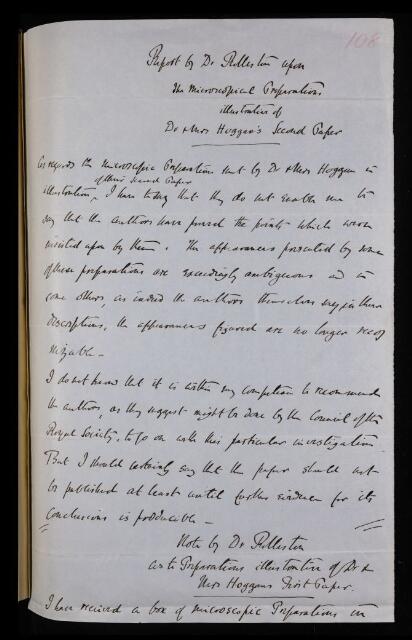 108
Report by Dr Rolleston upon
the Microscopical Preparations
illustrative of
Dr & Mrs Hoggan's Second Paper
As regards the Microscopic Preparations sent by Dr & Mrs Hoggan in
of their Second Paper
illustration, I have to say that they do not enable me to
say that the authors have proved the points which were
insisted upon by them. The appearances presented by some
of these preparations are exceedingly ambiguous and in
some others, as indeed the authors themselves say in their
descriptions, the appearances figured are no longer recog
nizable -
I do not know that it is within my competence to recommend
the authors, as they suggest might be done by the Council of the
Royal Society, to go on with this particular investigation
But I should certainly say that the paper should not
be published at least until further evidence for its
conclusions is producible -
Note by Dr Rolleston
as to Preparations illustrative of Dr &
Mrs Hoggans First Paper.
I have received a box of microscopic Preparations in